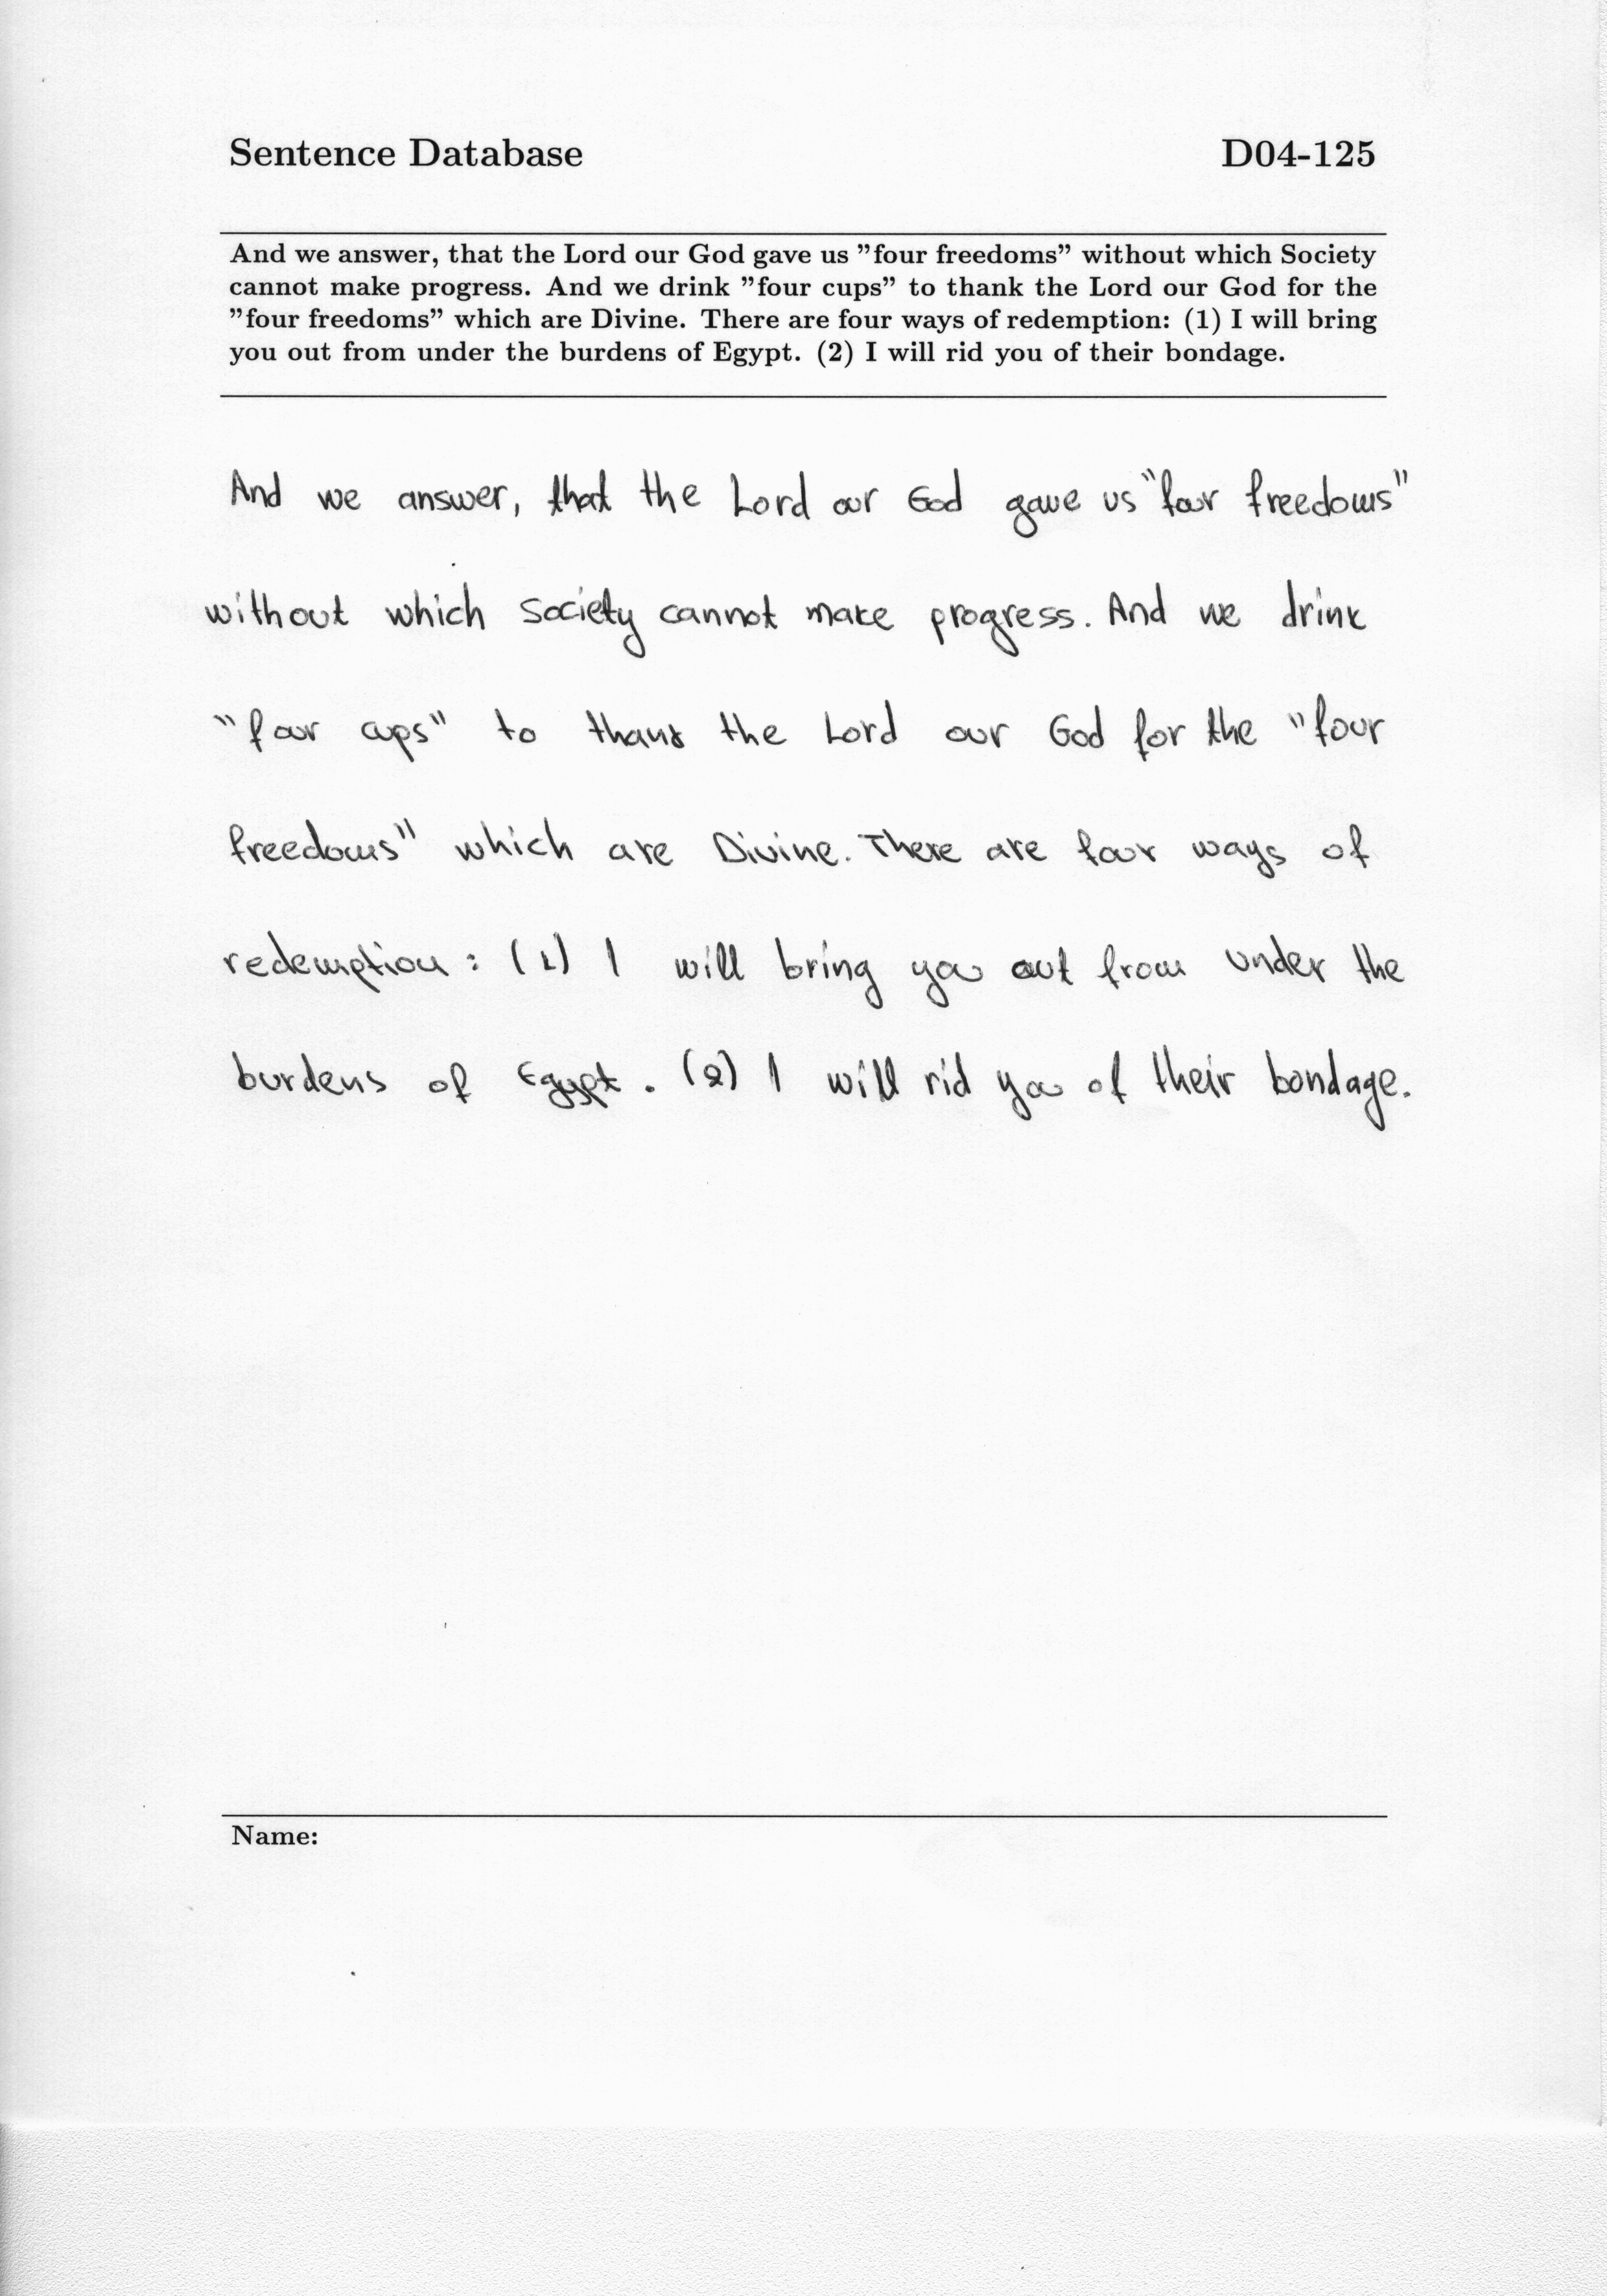 Sentence Database D04-125
And we answer, that the Lord our God gave us ”four freedoms” without which Society
cannot make progress. And we drink ”four cups” to thank the Lord our God for the
”four freedoms” which are Divine. There are four ways of redemption: (1) I will bring
you out from under the burdens of Egypt. (2) I will rid you of their bondage.
And we answer, that the Lord our God gave us "four freedoms"
without which Society cannot make progress. And we drink
"four cups" to thank the Lord our God for the "four
freedoms" which are Divine. There are four ways of
redemption: (1) I will bring you out from under the
burdens of Egypt. (2) I will rid you of their bondage.
Name: